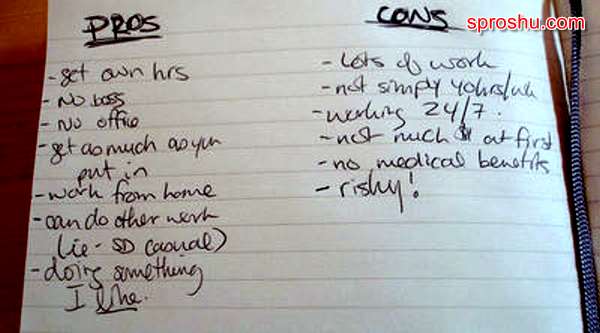 sproshu.com
PROS
- get own hrs
- No boss
- No office
- get as much as you
put in
- work from home
- can do other work
(ie - SD casual)
- doing something
I like.
CONS
- Lots of work
- not simply 40hrs/wk
- working 24/7.
- not much $ at first
- no medical benefits
- risky!